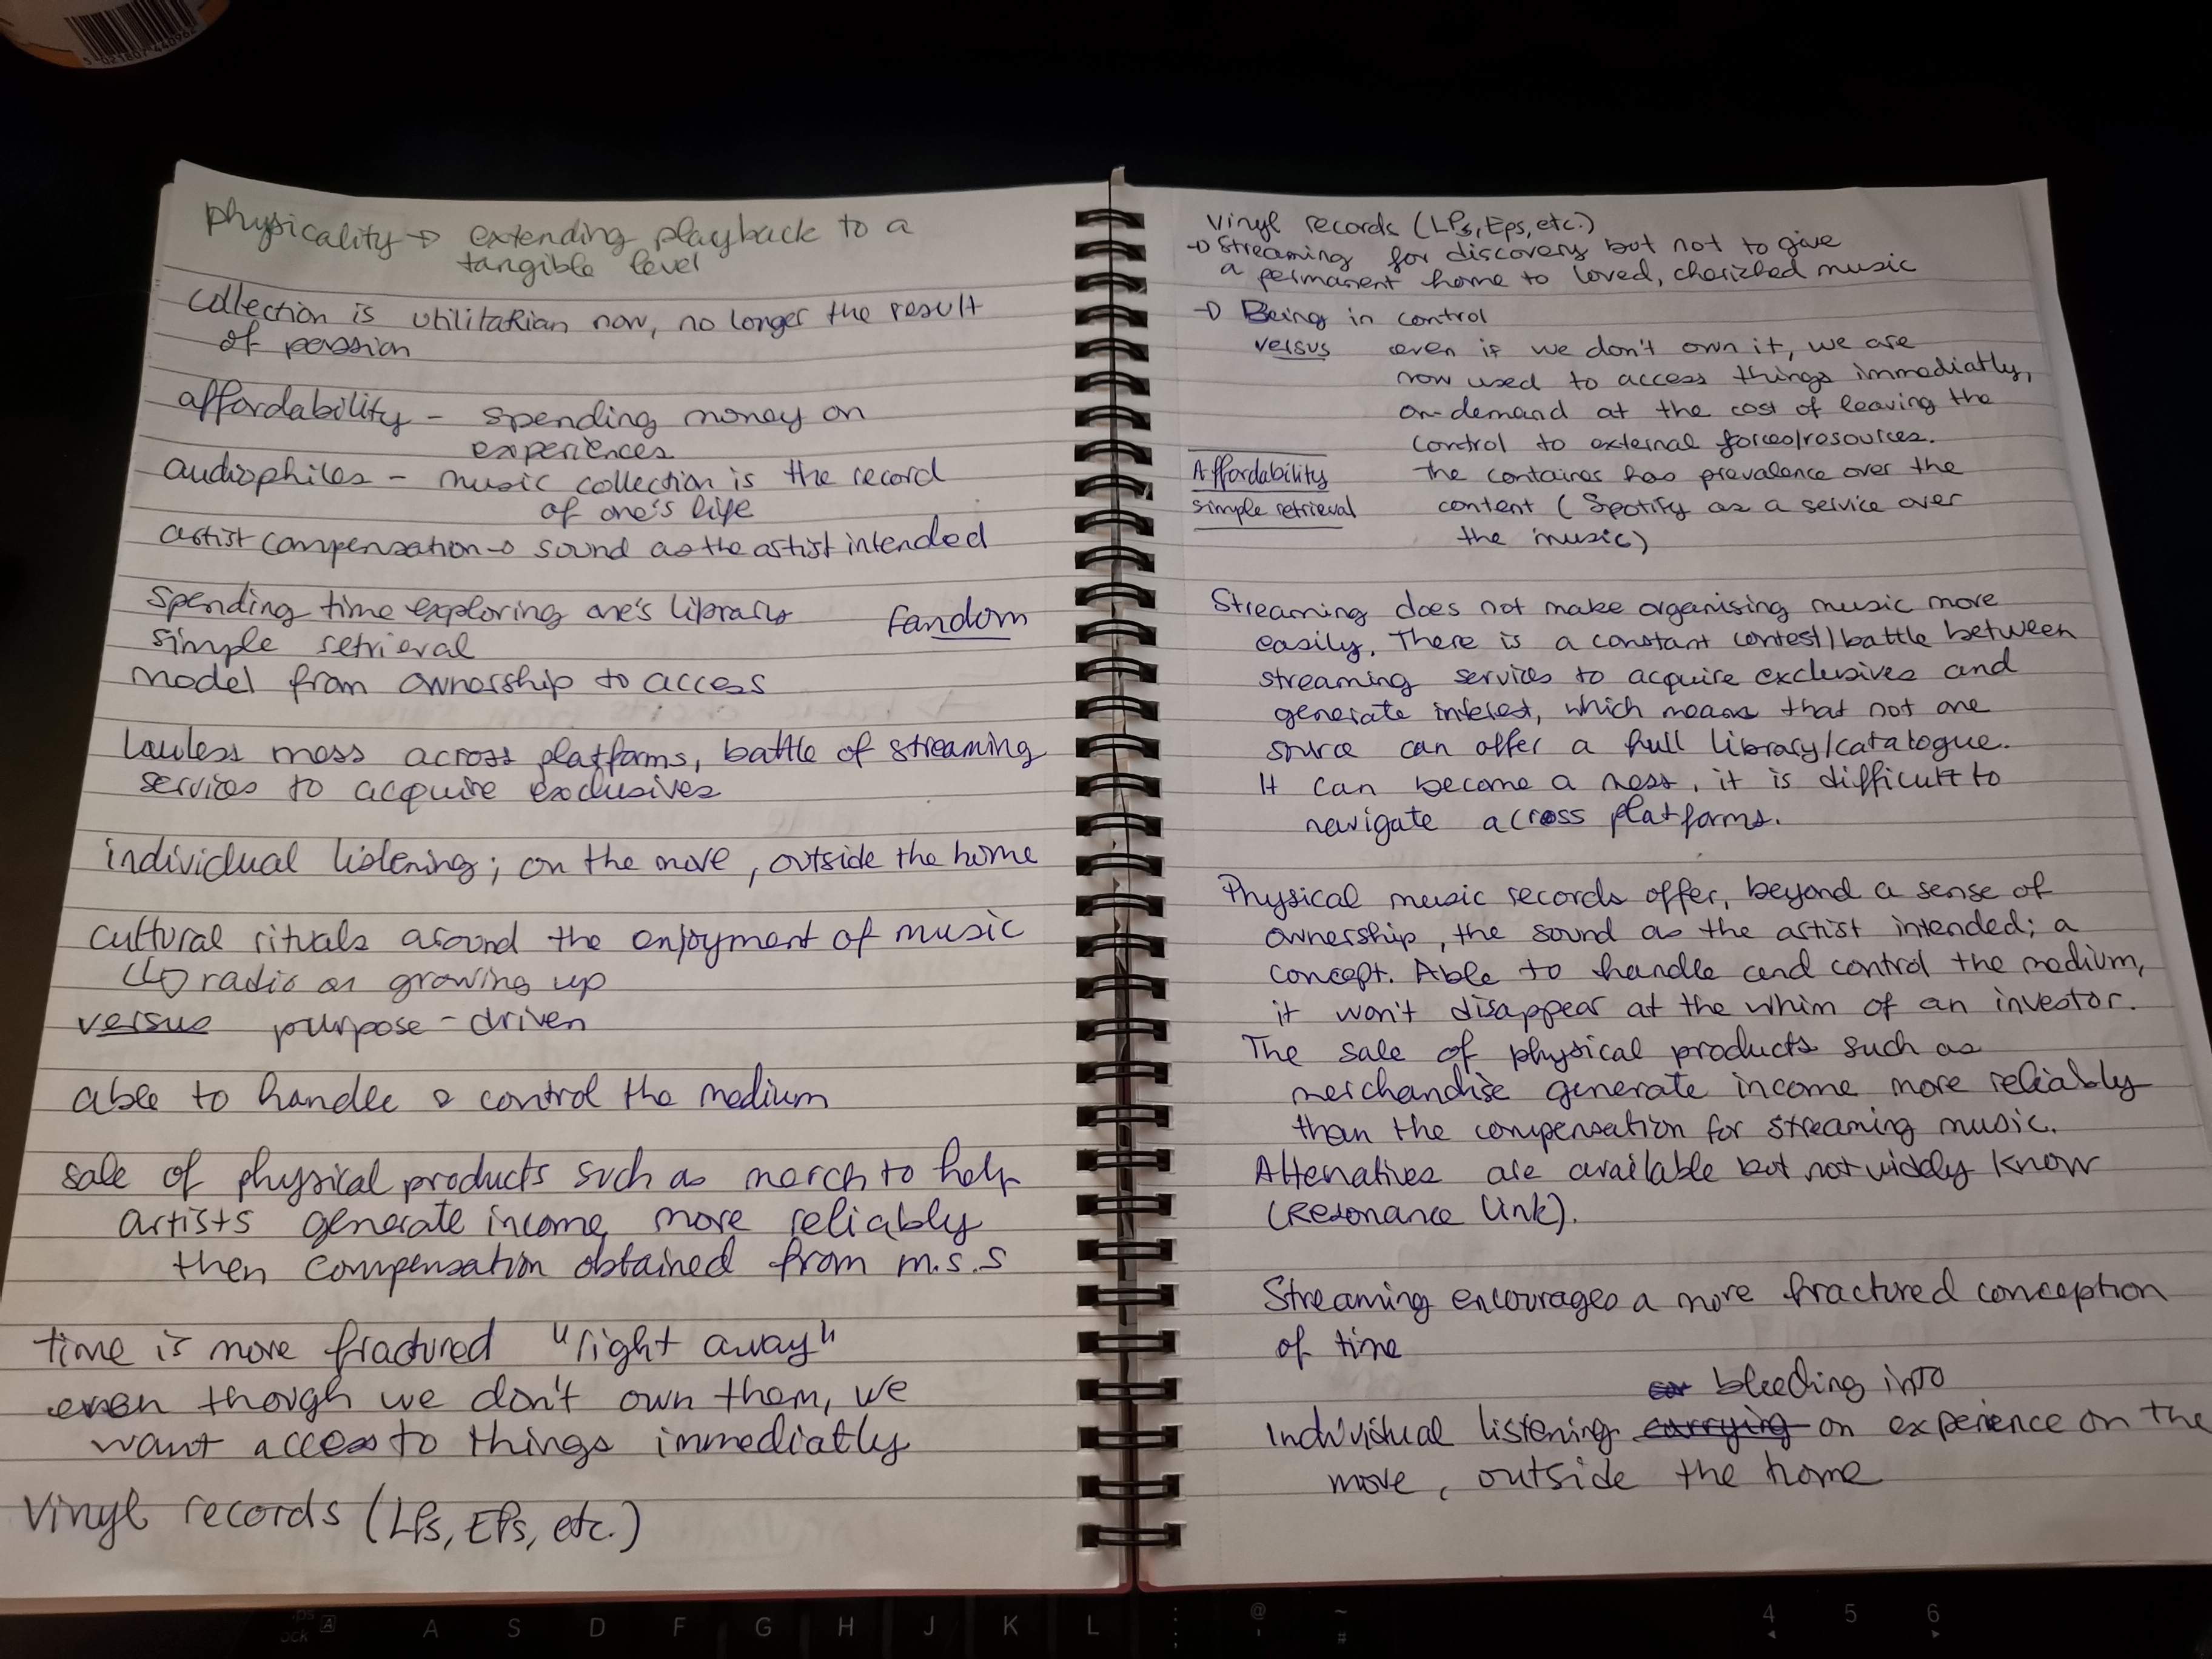 5 021807 440962
physicality → extending playback to a
tangible level
collection is utilitarian now, no longer the result
of passion
affordability - spending money on
experiences
audiophiles - music collection is the record
of one's life
artist compensation → sound as the artist intended
spending time exploring one's library
fandom
simple retrieval
model from ownership to access
lawless mess across platforms, battle of streaming
services to acquire exclusives
individual listening; on the move, outside the home
cultural rituals around the enjoyment of music
radio on growing up
versus purpose-driven
able to handle & control the medium
sale of physical products such as merch to help
artists generate income more reliably
then compensation obtained from m.s.s
time is more fractured "right away"
even though we don't own them, we
want access to things immediatly
Vinyl records (LPs, EPs, etc.)
Vinyl records (LPs, Eps, etc.)
→ Streaming for discovery but not to give
a permanent home to loved, cherished music
→ Being in control
versus even if we don't own it, we are
now used to access things immediatly,
on-demand at the cost of leaving the
control to external forces/resources.
Affordability The container has prevalence over the
simple retrieval content (Spotify as a service over
the music)
Streaming does not make organising music more
easily. There is a constant contest/battle between
streaming services to acquire exclusives and
generate interest, which means that not one
source can offer a full library/catalogue.
It can become a mess, it is difficult to
navigate across platforms.
Physical music records offer, beyond a sense of
ownership, the sound as the artist intended; a
concept. Able to handle and control the medium,
it won't disappear at the whim of an investor.
The sale of physical products such as
merchandise generate income more reliably
than the compensation for streaming music.
Altenatives are available but not widely know
(Resonance link).
Streaming encourages a more fractured conception
of time
bleeding into
Individual listening carrying on experience on the
move, outside the home
A S D F G H J K L ; @ ' ~ # 4 5 6